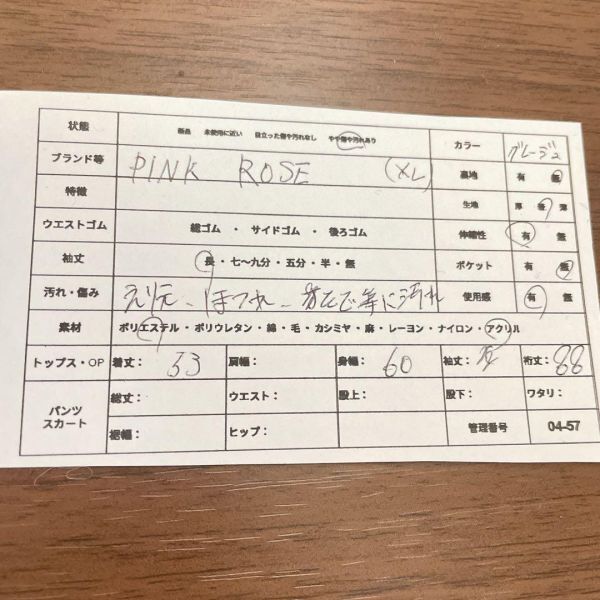 状態 新品 未使用に近い 目立った傷や汚れなし やや傷や汚れあり カラー グレージュ
ブランド等 PINK ROSE (XL) 裏地 有 無
特徴 生地 厚 普 薄
ウエストゴム 総ゴム ・ サイドゴム ・ 後ろゴム 伸縮性 有 無
袖丈 長・七〜九分・五分・半・無 ポケット 有 無
汚れ・傷み えり元、ほつれ、 等に汚れ 使用感 有 無
素材 ポリエステル・ポリウレタン・綿・毛・カシミヤ・麻・レーヨン・ナイロン・アクリル
トップス・OP 着丈: 53 肩幅: 身幅: 60 袖丈: 裄丈: 88
パンツ 総丈: ウエスト: 股上: 股下: ワタリ:
スカート 裾幅: ヒップ: 管理番号 04-57